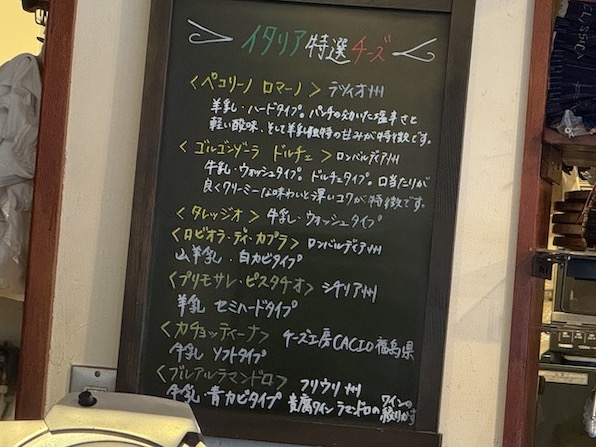 イタリア特選チーズ
<ペコリーノ ロマーノ> ラツィオ州
羊乳・ハードタイプ。パンチの効いた塩辛さと
軽い酸味、そして羊乳独特の甘みが特徴です。
<ゴルゴンゾーラ ドルチェ> ロンバルディア州
牛乳・ウォッシュタイプ。ドルチェタイプ。口当たりが
良くクリーミーな味わいと深いコクが特徴です。
<タレッジオ> 牛乳・ウォッシュタイプ
<ロビオラ・ディ・カプラ> ロンバルディア州
山羊乳・白カビタイプ
<プリモサレ・ピスタチオ> シチリア州
羊乳 セミハードタイプ
<カチョッティーナ> チーズ工房CACIO 福島県
牛乳 ソフトタイプ
<ブルアルラマンドロ> フリウリ州
牛乳・青カビタイプ 貴腐ワイン ラマンドロのワインの絞りかす
CLASSIC